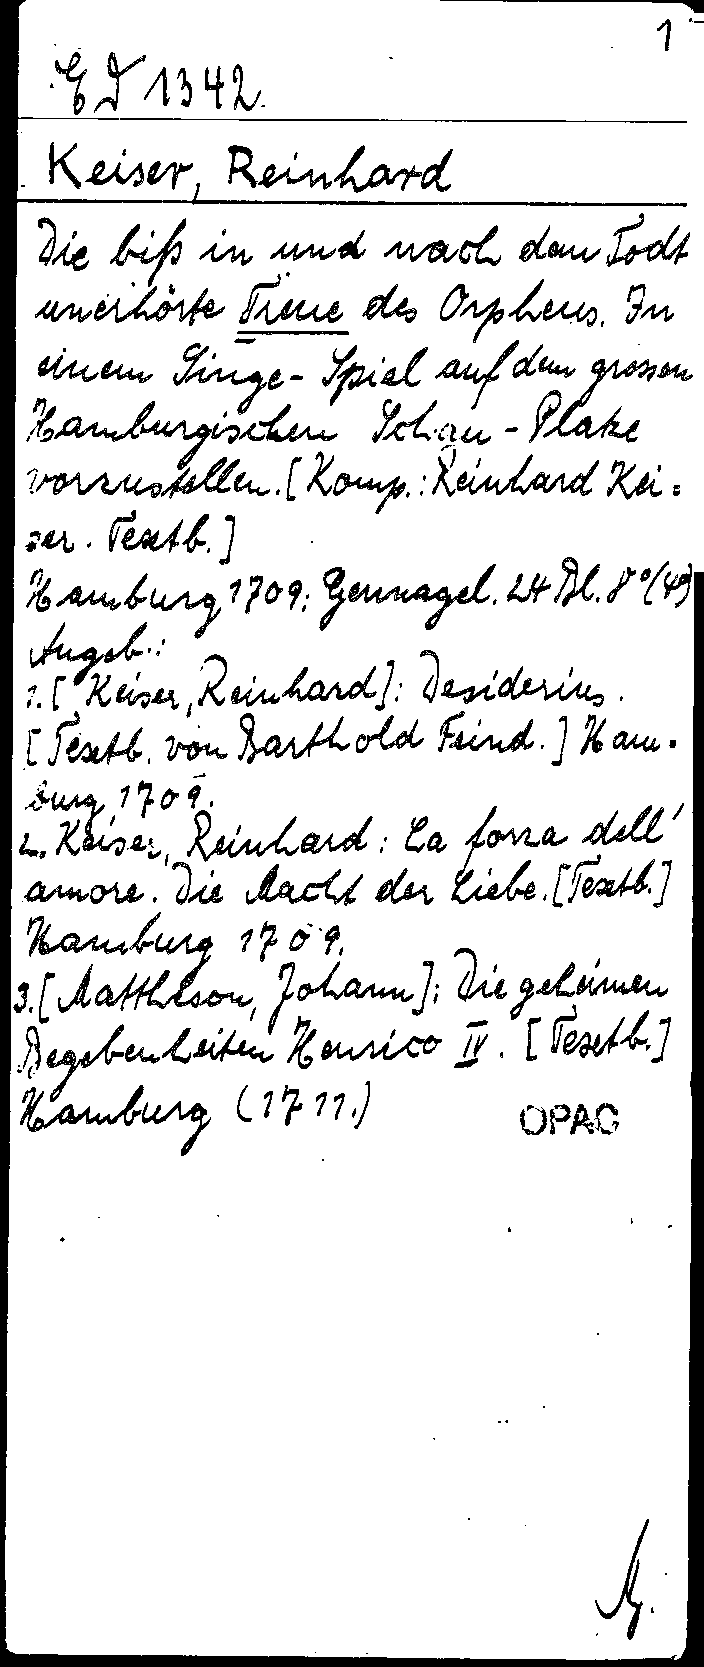 1
ED 1342.
Keiser, Reinhard
Die biß in und nach dem Todt
unerhörte Treue des Orpheus. In
einem Singe-Spiel auf dem grossen
Hamburgischen Schau-Platze
vorzustellen. [Komp.: Reinhard Kei-
ser. Textb.]
Hamburg 1709: Gennagel. 24 Bl. 8°(4°)
Angeb.:
1. [Keiser, Reinhard]: Desiderius.
[Textb. von Barthold Feind.] Ham-
burg 1709.
2. Keiser, Reinhard: La forza dell'
amore. Die Macht der Liebe. [Textb.]
Hamburg 1709.
3. [Mattheson, Johann]: Die geheimen
Begebenheiten Henrico IV. [Textb.]
Hamburg (1711.)
OPAC